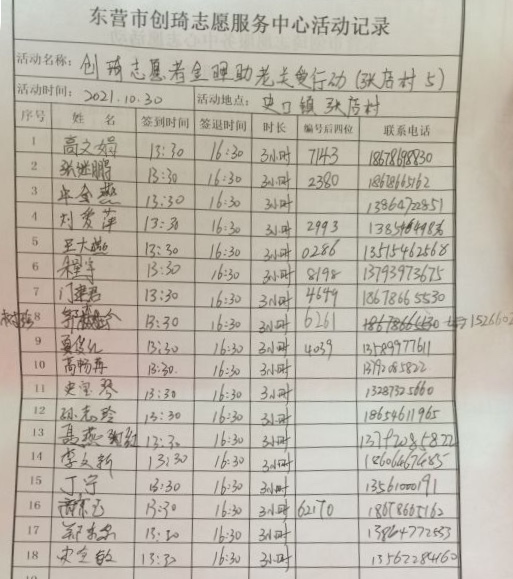 东营市创琦志愿服务中心活动记录
活动名称: 创琦志愿者金晖助老关爱行动 (张店村 5)
活动时间: 2021.10.30 活动地点: 史口镇 张店村
序号 姓 名 签到时间 签退时间 时长 编号后四位 联系电话
1 高文娟 13:30 16:30 3小时 7143 18678698830
2 张继鹏 13:30 16:30 3小时 2380 18678665162
3 13:30 16:30 3小时 13864722851
4 刘爱萍 13:30 16:30 3小时 2993
5 王大 13:30 16:30 3小时 0286 13515462568
6 程宇 13:30 16:30 3小时 8198 13793973675
7 门建君 13:30 16:30 3小时 4649 18678665530
8 13:30 16:30 3小时 6261
9 13:30 16:30 3小时 4039 13589977611
10 高畅再 13:30 16:30 3小时
11 史宝琴 13:30 16:30 3小时 13287325660
12 孙志玲 13:30 16:30 3小时 18654611965
13 高燕 13:30 16:30 3小时
14 李文新 13:30 16:30 3小时
15 丁宁 13:30 16:30 3小时 13561000191
16 13:30 16:30 3小时 18678665162
17 13:30 16:30 3小时
18 史全敏 13:30 16:30 3小时 13562284160